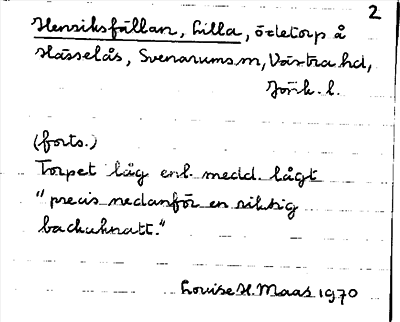 2
Henriksfällan, Lilla, ödetorp å
Hässelås, Svenarums sn, Västra hd,
Jönk. l.
(forts.)
Torpet låg enl. medd. lågt
"precis nedanför en riktig
backaknatt."
Louise H. Maas 1970